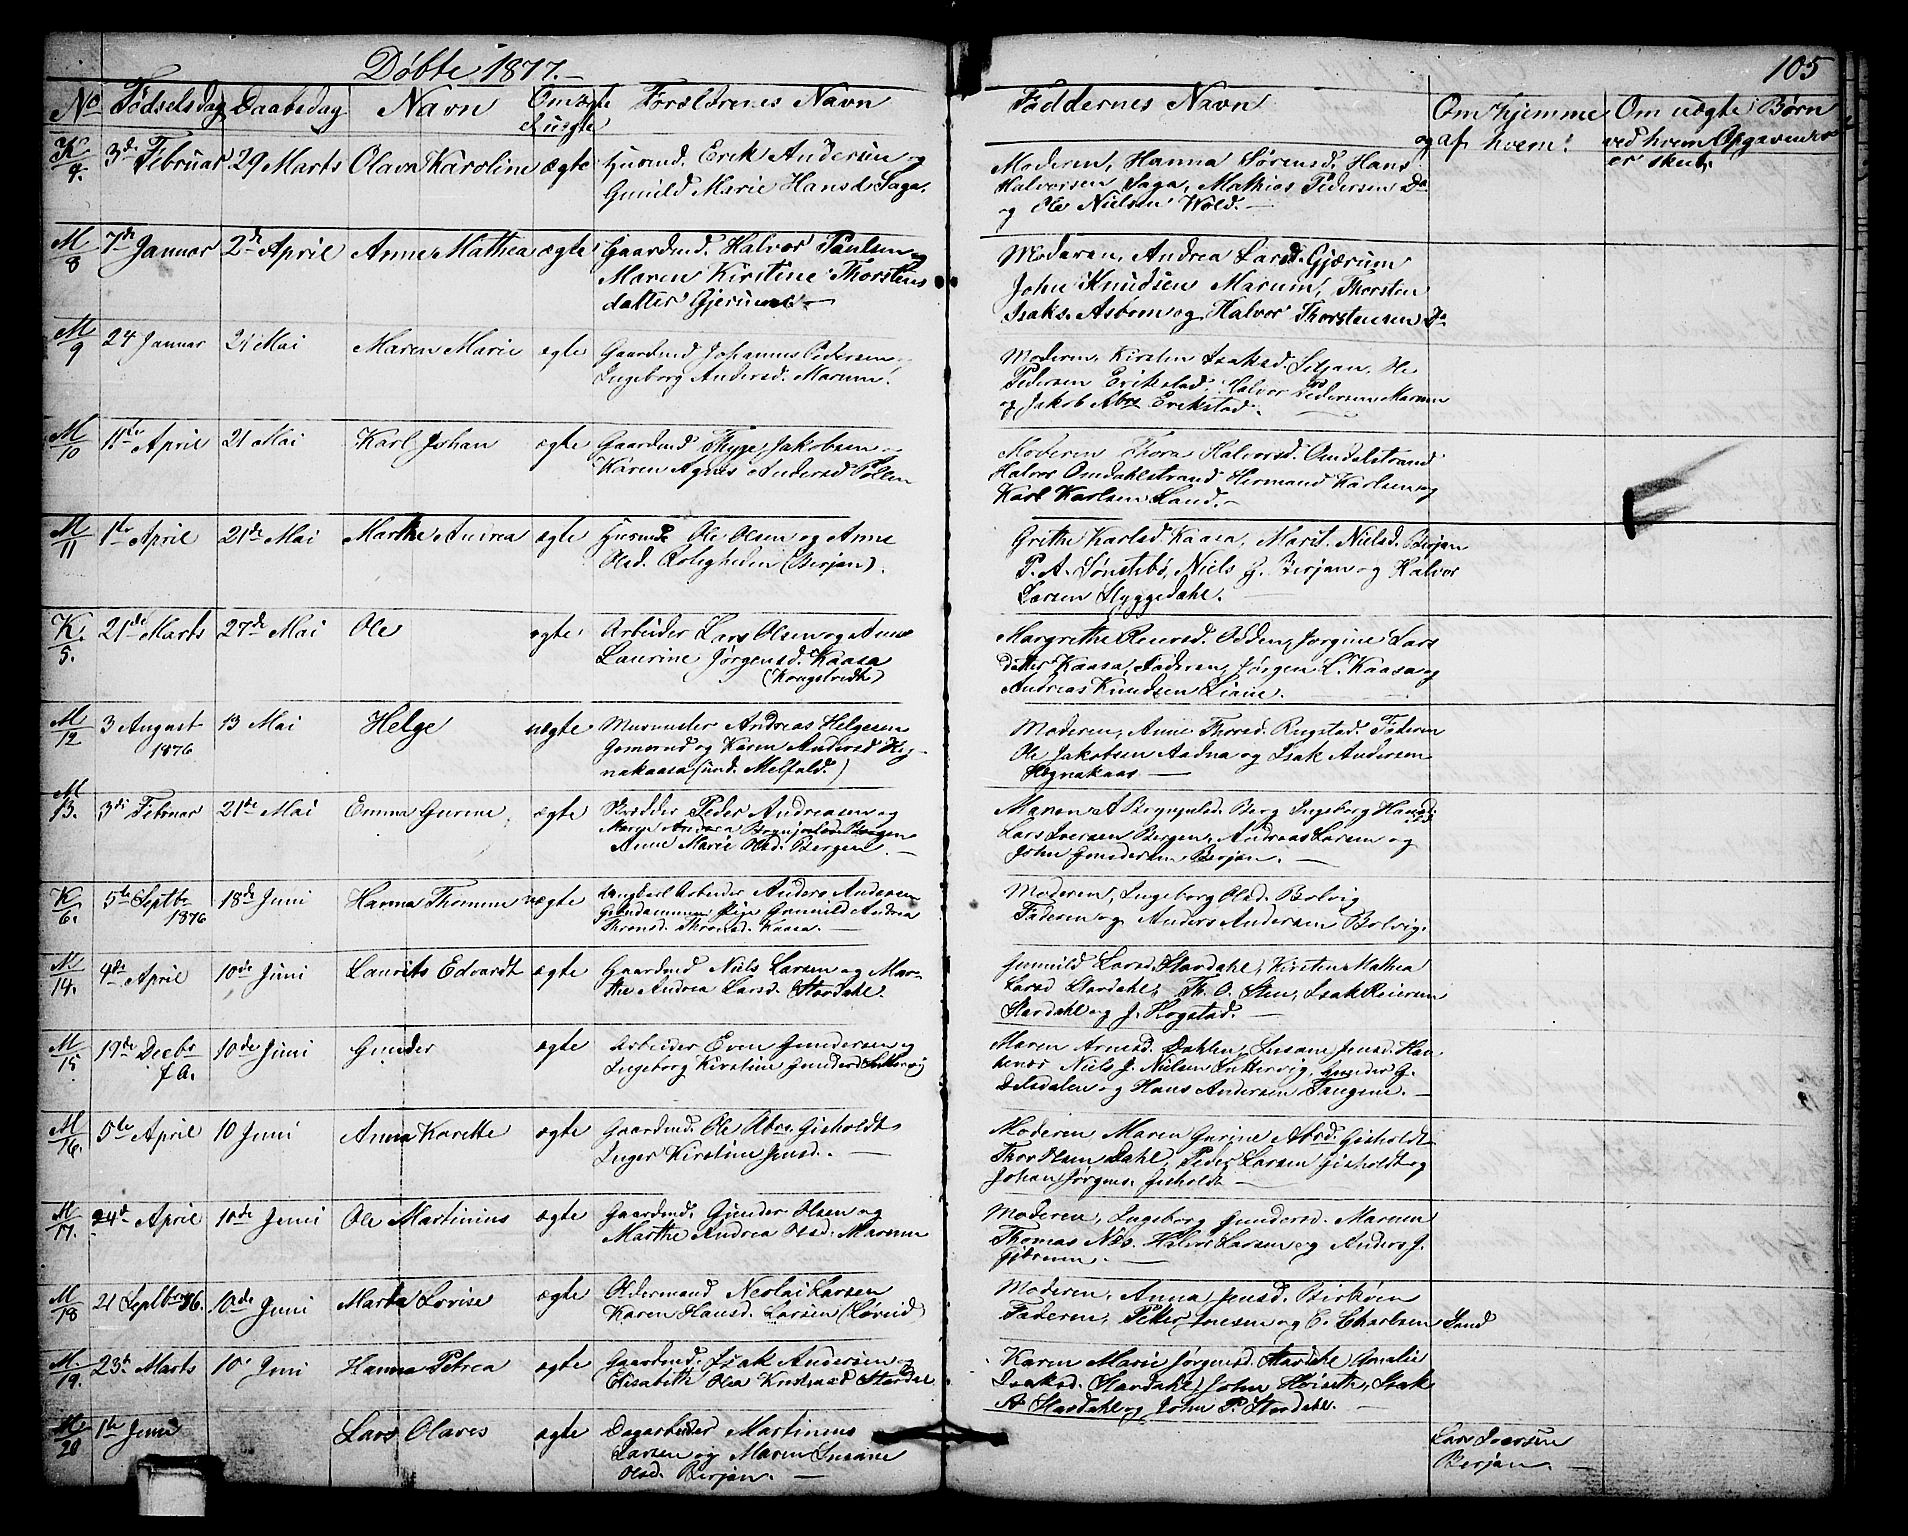 Døbte 1877.
105
No Fødselsdag Daabsdag Navn Om ægte el. uægte Forældrenes Navn Faddernes Navn Om hjemme og af hvem? Om uægte Børn ved hvem Opgaven er skeet.
K/4. 3de Februar 29 Marts Olava Karoline ægte Husmd. Erik Andersen og
Gunild Marie Hansd. Saga.
Moderen, Hanna Sørensd. Hans
Halvorsen Saga, Mathias Pedersen Do
og Ole Nielsen Wold.
M/8 7de Januar 2de April Anne Mathea ægte Gaardmd. Halvor Paulsen og
Maren Kirstine Thorstens
datter Gjerum
Moderen, Andrea Larsd. Gjærum
John Knudsen Marum, Thorsten
Isaks. Asbom og Halvor Thorstensen Do
M/9 24 Januar 21 Mai Maren Marie ægte Gaardmd Johannes Pedersen
Ingeborg Andersd. Marum.
Moderen, Kirsten Isaksd. Seljan, Ole
Pedersen Erikstad, Halvor Pedersen Marum
og Jakob Abrs Erikstad.
M/10 11te April 21 Mai Karl Johan ægte Gaardmd Thyge Jakobsen og
Karen Agnes Andersd Pollen
Moderen Thora Halvorsd. Omdalstrand
Halvor Omdahlstrand Hermand Karlsen og
Karl Karlsen Sand.
M/11 1te April 21de Mai Marthe Andrea ægte Husmd Ole Olsen og Anne
Olsd. Roligheden (Berjan).
Grethe Karlsd Kaasa, Marit Nielsd. Berjan
P. A. Sønstebø, Niels G. Berjan og Halvor
Larsen Styggedahl.
K./5. 21de Marts 27de Mai Ole ægte Arbeider Lars Olsen og Anne
Laurine Jørgensd. Kaasa
(Kongsbredt)
Margrethe Reiersd. Odden, Jorgine Lars
datter Kaasa, Faderen, Jørgen L. Kaasa og
Andreas Knudsen Liane.
M/12 3 August 1876 13 Mai Helge uægte Murmester Andreas Helgesen
og Karen Andersd Heg-
nakaasa (und. Melfald.)
Moderen, Anne Thorsd. Rugstad. Faderen
Ole Jakobsen Aadna og Isak Andersen
Hegnakaas
M/13. 3de Februar 21de Mai Emma Gurine ægte Skrædder Peder Andreasen og
Anne Marie Olsd. Bergen.
Maren A Brynjulsd. Berg Ingeborg Hansd.
Lars Iversen Bergen, Andreas Larsen og
John Gundersen Berjan.
K/6. 5te Septbr 1876 18de Juni Hanna Thomine uægte Ungkarl Arbeider Anders Andersen
Pige Gunild Andrea
Thronsd. Kaasa.
Moderen, Ingeborg Olsd. Bolvig
Faderen og Anders Andersen Bolvig.
M/14. 4de April 10de Juni Laurits Edvardt ægte Gaardmd Niels Larsen og Mar-
the Andrea Larsd. Stordahl.
Gunild Larsd. Stordahl, Kirsten Mathea
Larsd Stordahl, Th. O. Sten, Isak Reiersen
Stordahl og J. Hogstad.
M/15 19de Decbr f.A. 10de Juni Gunder ægte Arbeider Even Gundersen og
Ingeborg Kirstine Gundersd
Maren Arnesd. Dahlen, Susane Jensd. Han-
Niels J. Nielsen Luttervig, Gunder G.
Delsdalen og Hans Andersen Tangene.
M/16. 5te April 10 Juni Anna Karette ægte Gaardmd. Ole Abrs. Gisholdt
Inger Kirstine Jensd.
Moderen Maren Gurine Abrsd. Gisholdt
Thor Olsen Dahl, Peder Larsen Gisholdt og
Johan Jørgens. Gisholdt
M/17. 24de April 10de Juni Ole Martinius ægte Gaardmd. Gunder Olsen og
Marthe Andrea Olsd. Marum
Moderen, Ingeborg Gundersd. Marum
Thomas Næs. Halvor Larsen og Anders J.
Gjerum
M/18 21 Septbr 76. 10de Juni Marta Lovise ægte Oldermand Nicolai Larsen
Karen Hansd. Larsen (Løveid)
Moderen, Anna Jensd. Birkøen
Faderen, Peter Jonsen og E. Charlsen Sand
M./19. 23de Marts 10 Juni Hanna Petrea ægte Gaardmd. Isak Andersen og
Elisabeth Olea Knudsd Stordal
Karen Marie Jørgensd. Stordahl Amalie
Isaksd. Stordahl, John Høiseth, Isak
A Stordahl og John P. Stordahl.
M/20 1te Juni Lars Olaves ægte Dagarbeider Martinius
Larsen og Maren Susane
Olsd. Berjan.
Lars Iversen
Berjan.